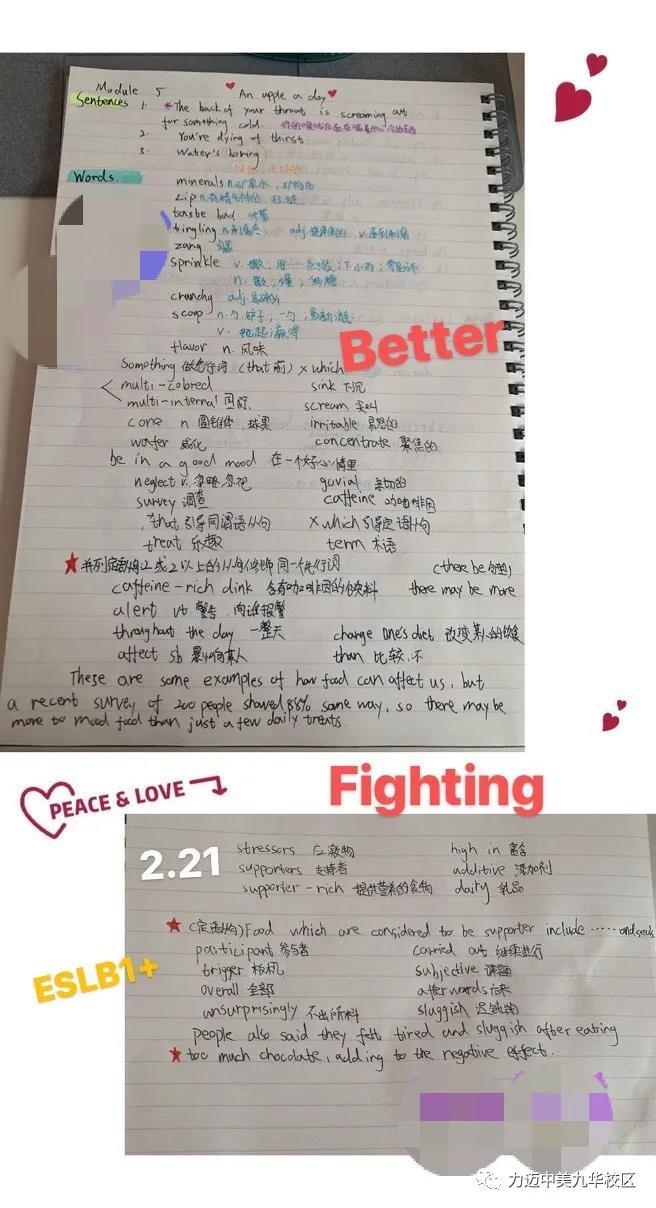 Module 5 An apple a day
Sentences 1. *The back of your throat is screaming out
for something cold.
2. You're dying of thirst
3. Water's boring
Words. minerals n.矿泉水,矿物质
zip n.
taste bud 味蕾
tingling n 刺痛感. adj v.
zang
sprinkle v. 撒; 用 ; 下小雨;
n. 撒;
crunchy adj 易碎的
scoop n.勺 一勺
v. 赢得
flavor n. 风味
Better
Something 做先行词 (that 前) × which
multi-colored sink 下沉
multi-internal 国际 scream 尖叫
cone n 圆锥体 球果 irritable 易怒的
wafer 威化 concentrate 聚焦的
be in a good mood 在一个好心情里
neglect v. 忽略 忽视 govial 亲切的
survey 调查 caffeine 咖啡因
, that 引导同谓语从句 × which 引导定语从句
treat 乐趣 term 术语
★ 并列定语从句 2或2以上的从句修饰同一先行词 (there be 句型)
caffeine-rich dink 含有咖啡因的饮料 there may be more
alert vt 警告 向谁报警
throughout the day 一整天 change one's diet 改变某人的饮食
affect sb 影响某人 than 比较,不
These are some examples of how food can affect us, but
a recent survey of 200 people showed 88% same way, so there may be
more to mood food than just a few daily treats.
PEACE & LOVE
Fighting
2.21
stressors 应激物 high in 富含
supporters 支持者 additive 添加剂
supporter-rich 提供营养的食物 daity 乳品
★ (定语从句) Food which are considered to be supporter include ······ and seeds
ESLB1+
participant 参与者 carried out 继续进行
trigger 扳机 subjective 课题
overall 全部 afterwords 后来
unsurprisingly 不出所料 sluggish 迟钝的
people also said they felt tired and sluggish after eating
★ too much chocolate, adding to the negative effect.
力迈中美九华校区